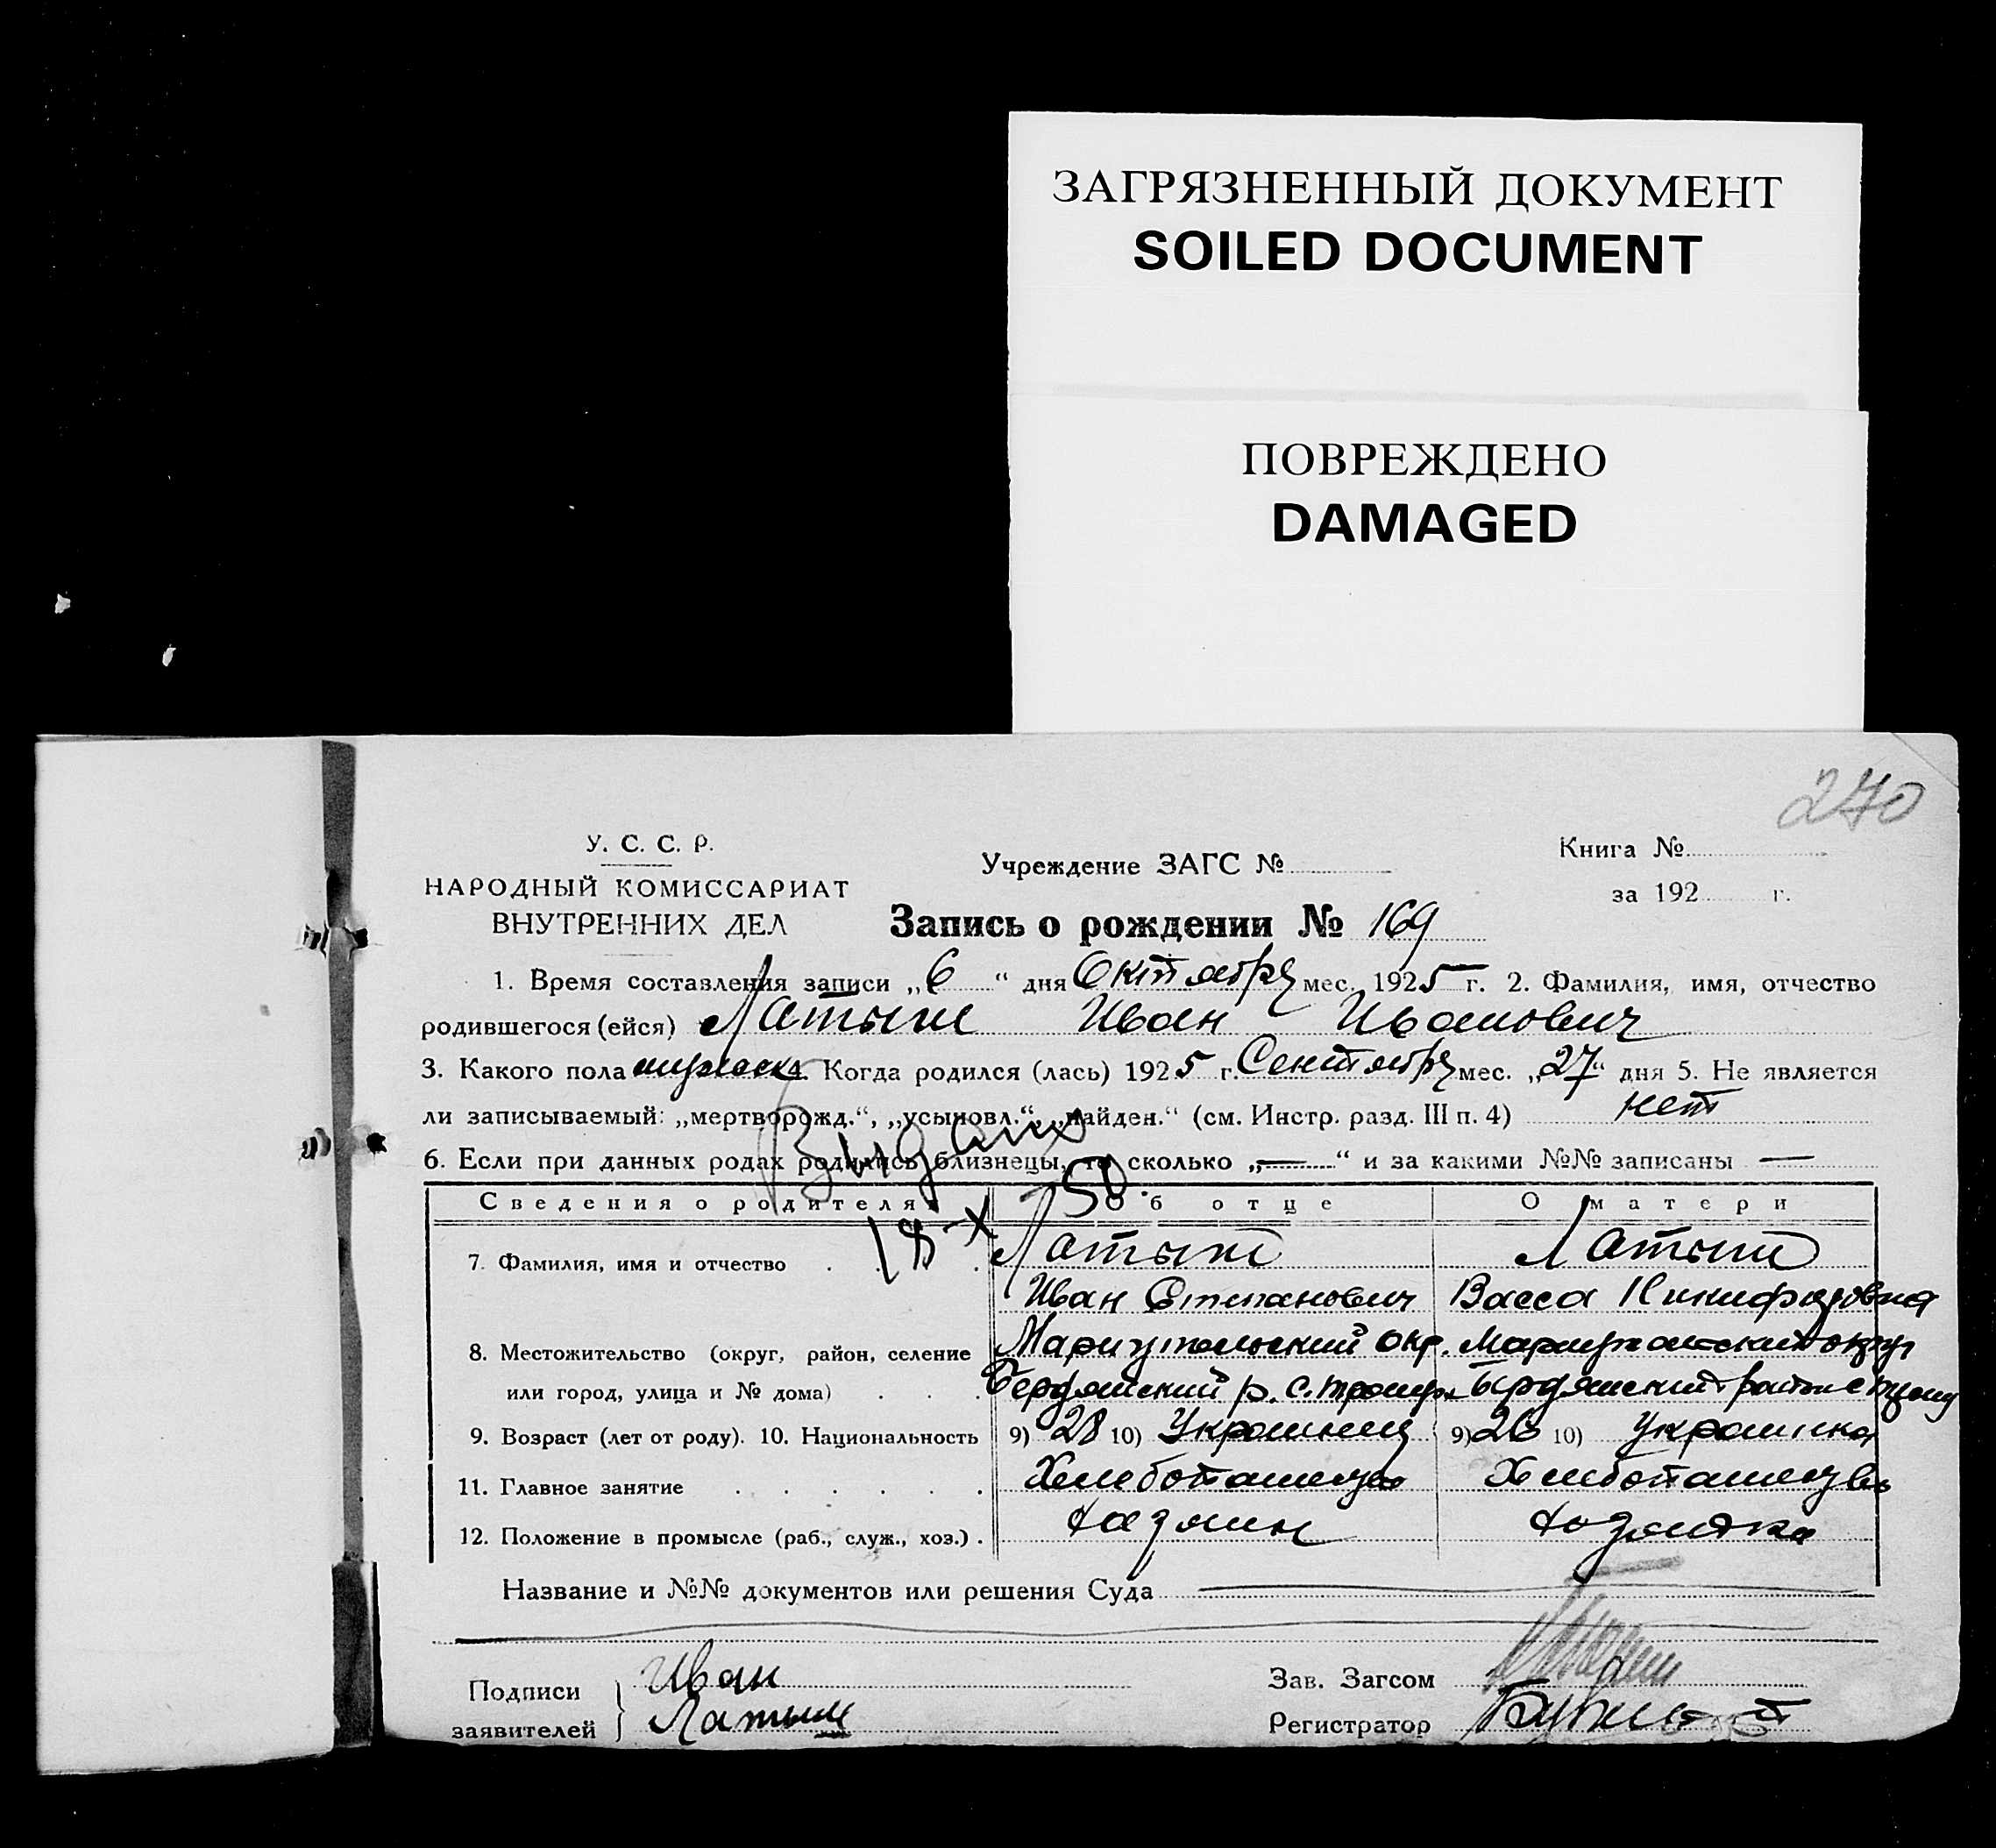 ЗАГРЯЗНЕННЫЙ ДОКУМЕНТ
SOILED DOCUMENT
ПОВРЕЖДЕНО
DAMAGED
270
У. С. С. Р.
НАРОДНЫЙ КОМИССАРИАТ
ВНУТРЕННИХ ДЕЛ
Учреждение ЗАГС №
Книга №
за 192 г.
Запись о рождении № 169
1. Время составления записи „6“ дня Октября мес. 1925 г. 2. Фамилия, имя, отчество
родившегося (ейся) Латыш Иван Иванович
3. Какого пола мужск 4. Когда родился (лась) 1925 г. Сентября мес. „27“ дня 5. Не является
ли записываемый: „мертворожд.“, „усыновл.“, „найден.“ (см. Инстр. разд. III п. 4) нет
6. Если при данных родах родились близнецы, то сколько „—“ и за какими №№ записаны —
18-X 50
Сведения о родителях Об отце О матери
7. Фамилия, имя и отчество Латыш Латыш
Иван Степанович Васса Никифоровна
8. Местожительство (округ, район, селение Мариупольский окр. Мариупольский округ
или город, улица и № дома) Бердянский р. с. Бердянский район
9. Возраст (лет от роду). 10. Национальность 9) 28 10) Украинец 9) 26 10) Украинка
11. Главное занятие Хлебопашество Хлебопашество
12. Положение в промысле (раб., служ., хоз.) Хозяин Хозяйка
Название и №№ документов или решения Суда
Подписи заявителей
Иван
Латыш
Зав. Загсом
Регистратор